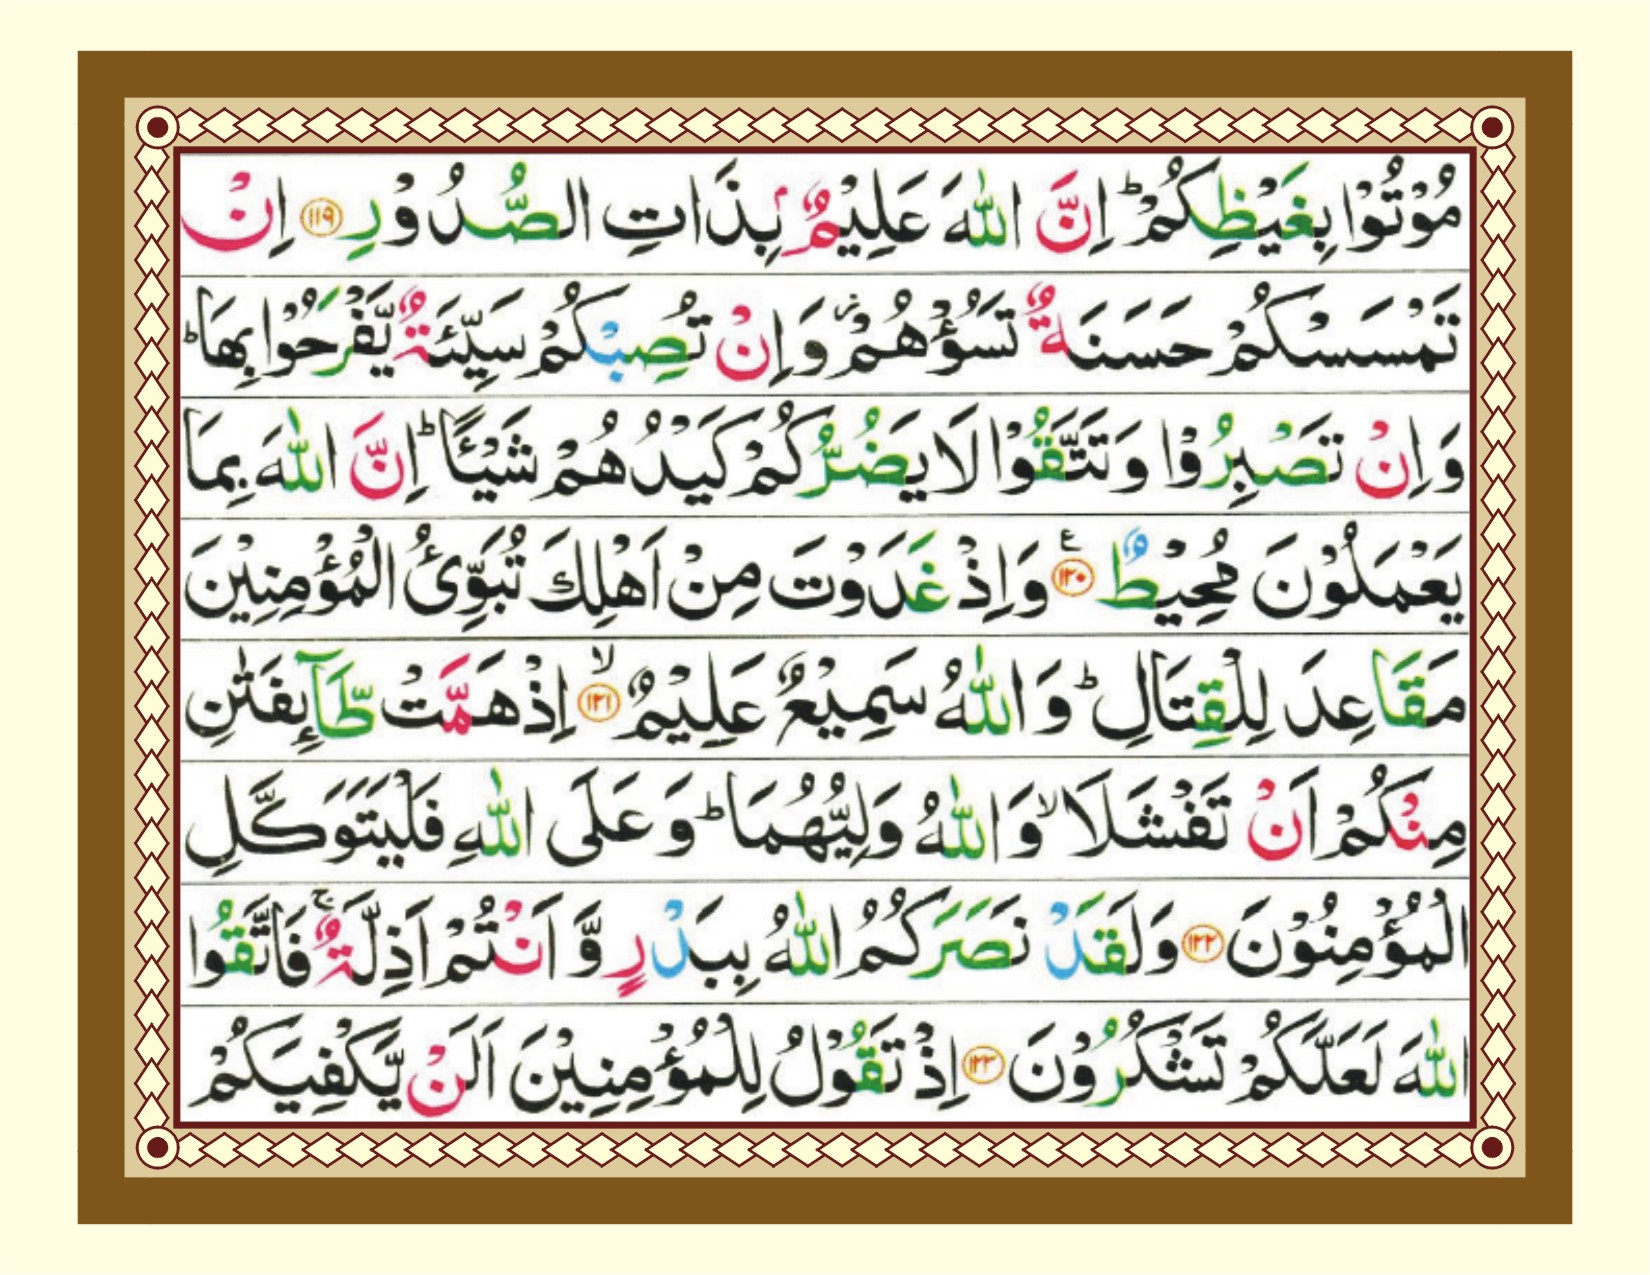 مُوْتُوْا بِغَيْظِكُمْ ؕ اِنَّ اللّٰهَ عَلِيْمٌۢ بِذَاتِ الصُّدُوْرِ ﴿۱۱۹﴾ اِنْ
تَمْسَسْكُمْ حَسَنَةٌ تَسُؤْهُمْ ؗ وَاِنْ تُصِبْكُمْ سَيِّئَةٌ يَّفْرَحُوْا بِهَا ؕ
وَاِنْ تَصْبِرُوْا وَتَتَّقُوْا لَا يَضُرُّكُمْ كَيْدُهُمْ شَيْـًٔا ؕ اِنَّ اللّٰهَ بِمَا
يَعْمَلُوْنَ مُحِيْطٌ ﴿۱۲۰﴾ ع وَاِذْ غَدَوْتَ مِنْ اَهْلِكَ تُبَوِّئُ الْمُؤْمِنِيْنَ
مَقَاعِدَ لِلْقِتَالِ ؕ وَاللّٰهُ سَمِيْعٌ عَلِيْمٌ ﴿۱۲۱﴾ ۙ اِذْ هَمَّتْ طَّآىِٕفَتٰنِ
مِنْكُمْ اَنْ تَفْشَلَا ۙ وَاللّٰهُ وَلِيُّهُمَا ؕ وَعَلَى اللّٰهِ فَلْيَتَوَكَّلِ
الْمُؤْمِنُوْنَ ﴿۱۲۲﴾ وَلَقَدْ نَصَرَكُمُ اللّٰهُ بِبَدْرٍ وَّاَنْتُمْ اَذِلَّةٌ ۚ فَاتَّقُوا
اللّٰهَ لَعَلَّكُمْ تَشْكُرُوْنَ ﴿۱۲۳﴾ اِذْ تَقُوْلُ لِلْمُؤْمِنِيْنَ اَلَنْ يَّكْفِيَكُمْ